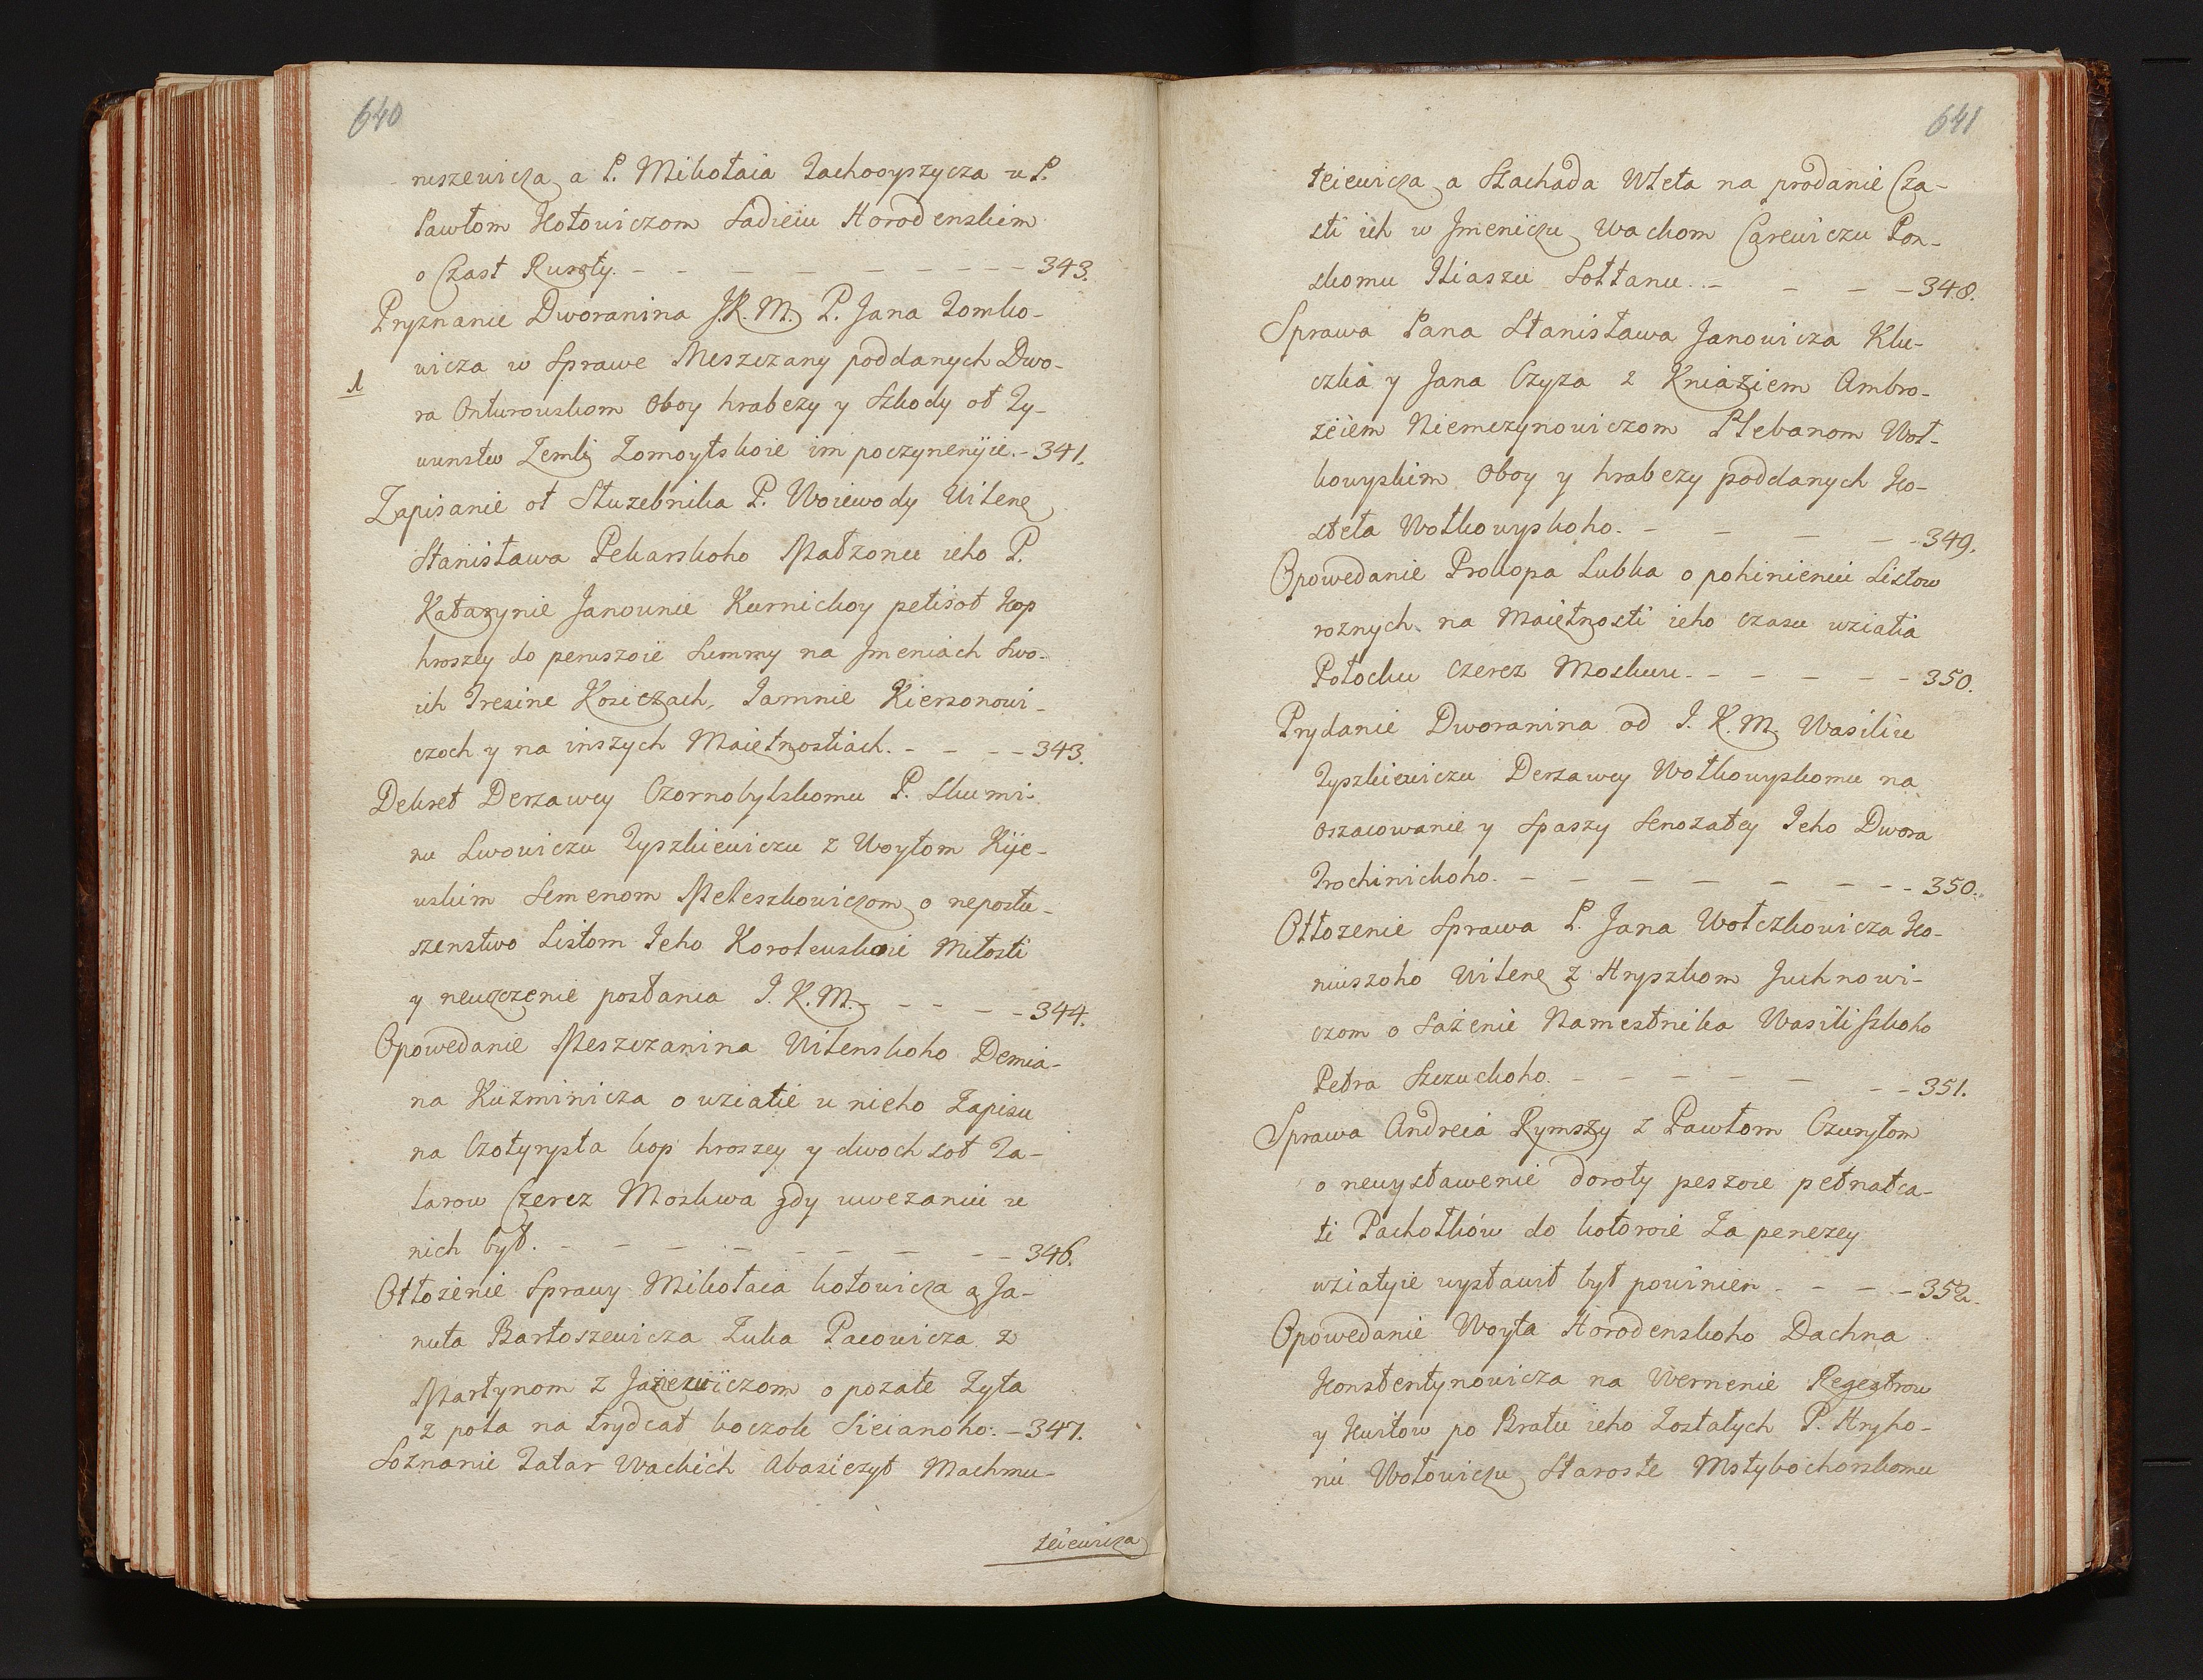 640
nuszewicza a P. Mikołaia Jachowyszycza u P.
Pawłom Kotowiczom Sadieiu Horodenskim
o Czast Rusoty. - - - - - - - - - 343.
Pryznanie Dworanina J.K.M. P. Jana Tomko-
wicza w Sprawe Meszczany poddanych Dwo-
1
ra Onturouskom oboy hrabezy y Szkody ot Ty-
wunstw Zemli Zomoytskoie im poczynenyie. - 341.
Zapisanie ot Słuzebnika P. Woiewody Wilene
Stanisława Pekarskoho Małzonce ieho P.
Katarynie Janounie Kurnickoy petisot kop
hroszey do perwszoie Summy na Jmeniach Swo-
ich Tresine Kosiczach, Jamnie Kiersonowi-
czoch y na inszych Maietnostiach. - - - - 343.
Dekret Derzawcy Czornobylskomu P. Skumi-
nu Lwowiczu Tyszkiewiczu z Woytom Kije-
uskim Semenom Meleszkowiczom o neposłu-
szenstwo Listom Jeho Korolewskoie Miłosti
y neuczczenie posłania J.K.M. - - - - 344.
Opowedanie Meszczanina Wilenskoho Demia-
na Kuzminicza o wziatie u nieho Zapisu
na Czotyrysta kop hroszey y dwoch sot Ta-
larow Czerez Moskwa gdy uwezaniu u
nich był. - - - - - - - - - 346.
Otłozenie Sprawy Mikołaia kotowicza a Ja-
nuta Bartoszewicza Zuka Pacowicza z
Martynom z Jazezwiczom o pozate Zyta
z pola na trydcat boczok Sieianoho. - 347.
Soznanie Tatar Wackich Abasiczyt Machmu-
teiewicza
641
teiewicza a Szachada Wleta na prodanie Cza-
sti ich w Jmeniczu Wackom Carewiczu Pon-
skomu Iliaszu Sołtanu. - - - - 348.
Sprawa Pana Stanisława Janowicza Klu-
czka y Jana Czyza z Kniaziem Ambro-
zeiem Niemczynowiczom Plebanom Woł-
kowyskim oboy y hrabezy poddanych Ko-
steła Wołkowyskoho. - - - - 349.
Opowedanie Prokopa Lubka o pohinieniu Listow
roznych na Maietnosti ieho czasu wziatia
Połocku czerez Moskwu. - - - - - 350.
Prydanie Dworanina od J.K.M. Wasiliu
Tyszkiewiczu Derzawcy Wołkowyskomu na
oszacowanie y Spaszy Senozatey Jeho Dwora
Trochinickoho. - - - - - - - - 350.
Otłozenie Sprawa P. Jana Wołczkowicza Ko-
niuszoho Wilene z Hryszkom Juchnowi-
czom o Sazenie Namestnika Wasiliszkoho
Petra Szczuckoho. - - - - - - - 351.
Sprawa Andreia Rymszy z Pawłom Czuryłom
o newystawenie doroty peszoie petnatca-
ti Pachołków do kotoroie Za penezey
wziatyie wystawit był powinien - - - - 352.
Opowedanie Woyta Horodenskoho Dachna
Konstentynowicza na Wernenie Regestrow
y Kwitow po Bratu ieho Zostałych P. Hryho-
riu Wołowiczu Staroste Mstybochorskomu